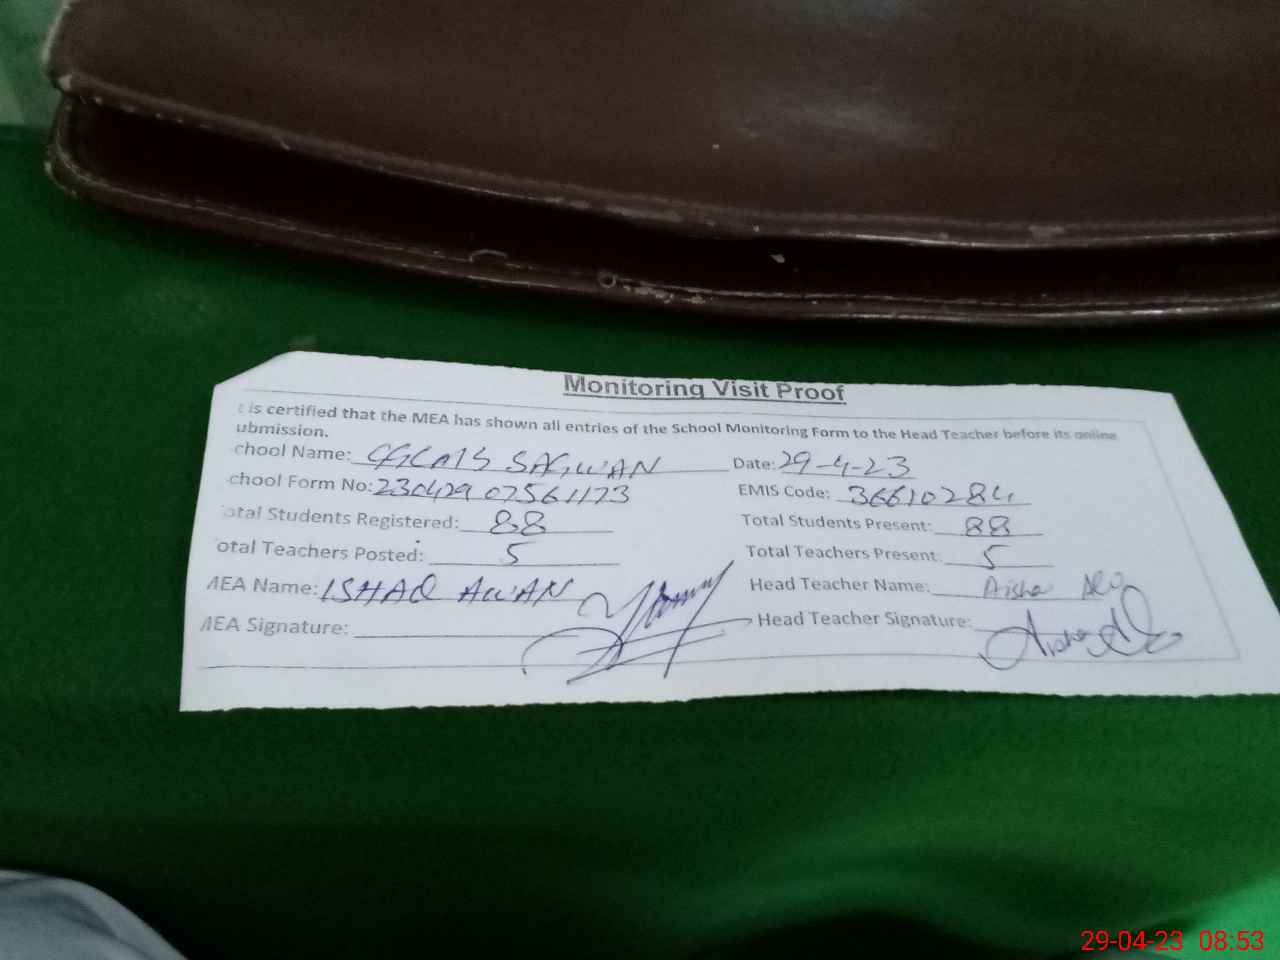 Monitoring Visit Proof
t is certified that the MEA has shown all entries of the School Monitoring Form to the Head Teacher before its online
ubmission.
chool Name: SAGWAN Date: 29-4-23
chool Form No: 230429 07561173 EMIS Code: 36610284
otal Students Registered: 88 Total Students Present: 88
otal Teachers Posted: 5 Total Teachers Present: 5
MEA Name: ISHAQ AWAN Head Teacher Name: Aisha
MEA Signature: Head Teacher Signature:
29-04-23 08:53